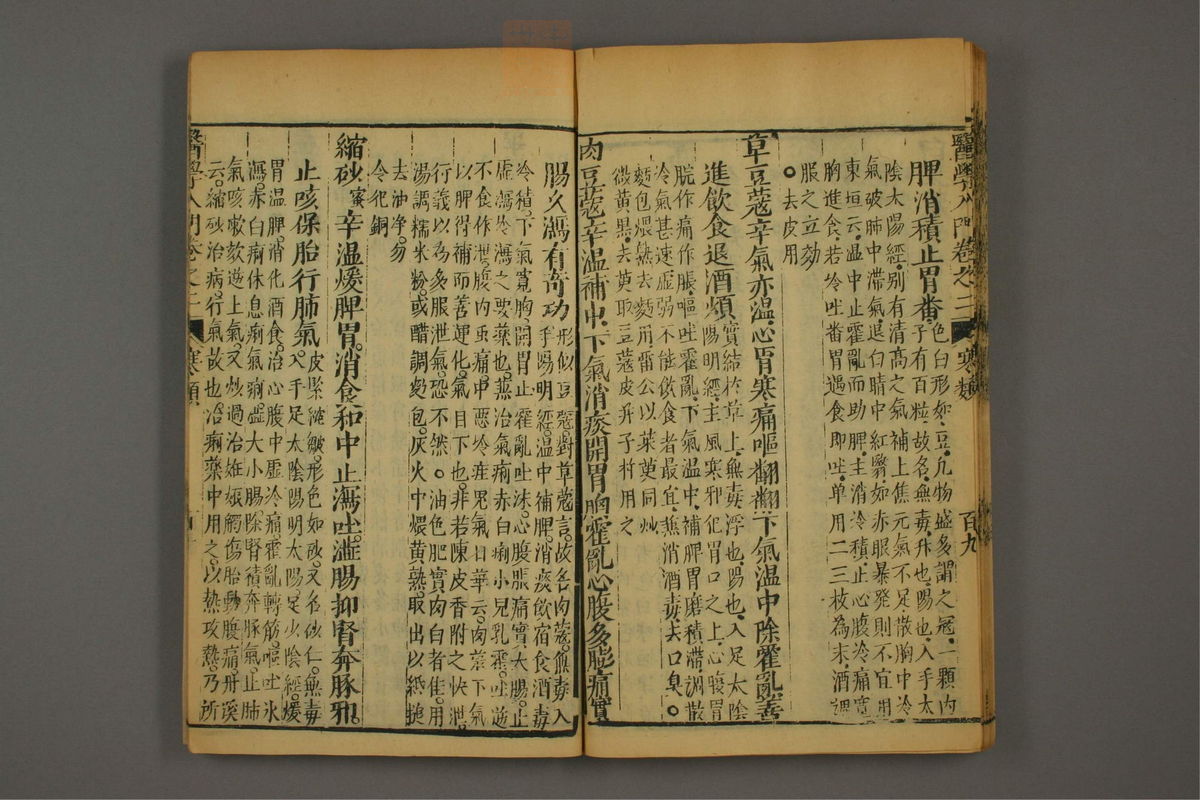 醫學入門卷之二 寒類 百九
脾消積止胃畨色白形如豆凢物盛多謂之冦一顆内
子有百粒故名無毒升也陽也入手太
陰太陽經别有清髙之氣補上焦元氣不足散胸中冷
氣破肺中滯氣退白睛中紅翳如赤眼暴発則不宜用
東垣云温中止霍亂而助脾主消冷積止心腹冷痛寛
胸進食若冷吐畨胃遇食即吐单用二三枚為末酒調
服之立効
○去皮用
草豆蔻辛氣亦温心胃寒痛嘔翻翻下氣温中除霍亂善
進飲食退酒煩實結于草上無毒浮也陽也入足太陰
陽明經主風寒邪犯胃口之上心腹胃
脘作痛作脹嘔吐霍亂下氣温中補脾胃磨積滯調散
冷氣甚速虚弱不能飲食者最宜兼消酒毒去口臭○
麪包煨熟去麪用雷公以茱萸同炒
微黄黒去萸取豆蔻皮并子杵用之
肉豆蔻辛温補中下氣消痰開胃胸霍亂心腹多膨痛實
腸久瀉有奇功形似豆蔻對草蔻言故名肉蔻無毒入
手陽明經温中補脾消痰飲宿食酒毒
冷積下氣寛胸開胃止霍亂吐沫心腹脹痛實大腸止
虚瀉冷瀉之要藥也兼治氣痢赤白痢小兒乳霍吐逆
不食作泄腹内虫痛中惡冷疰鬼氣日華云肉蔻下氣
以脾得補而善運化氣自下也非若陳皮香附之快泄
行義以為多服泄氣恐不然○油色肥實肉白者佳用
湯調糯米粉或醋調麪包灰火中煨黄熟取出以紙搥
去油净勿
令犯銅
縮砂蜜辛温煖脾胃消食和中止瀉吐澁腸抑腎奔豚邪
止咳保胎行肺氣皮緊縮皺形色如砂又名砂仁無毒
入手足太陰陽明太陽足少陰經煖
胃温脾消化酒食治心腹中虚冷痛霍亂轉筋嘔吐氷
瀉赤白痢休息痢氣痢盬大小腸除腎積奔豚氣止肺
氣咳嗽欬逆上氣又炒過治姙娠觸傷胎動腹痛丹溪
云縮砂治病行氣故也治痢藥中用之以熱攻熱乃所
醫學入門卷之二 寒類